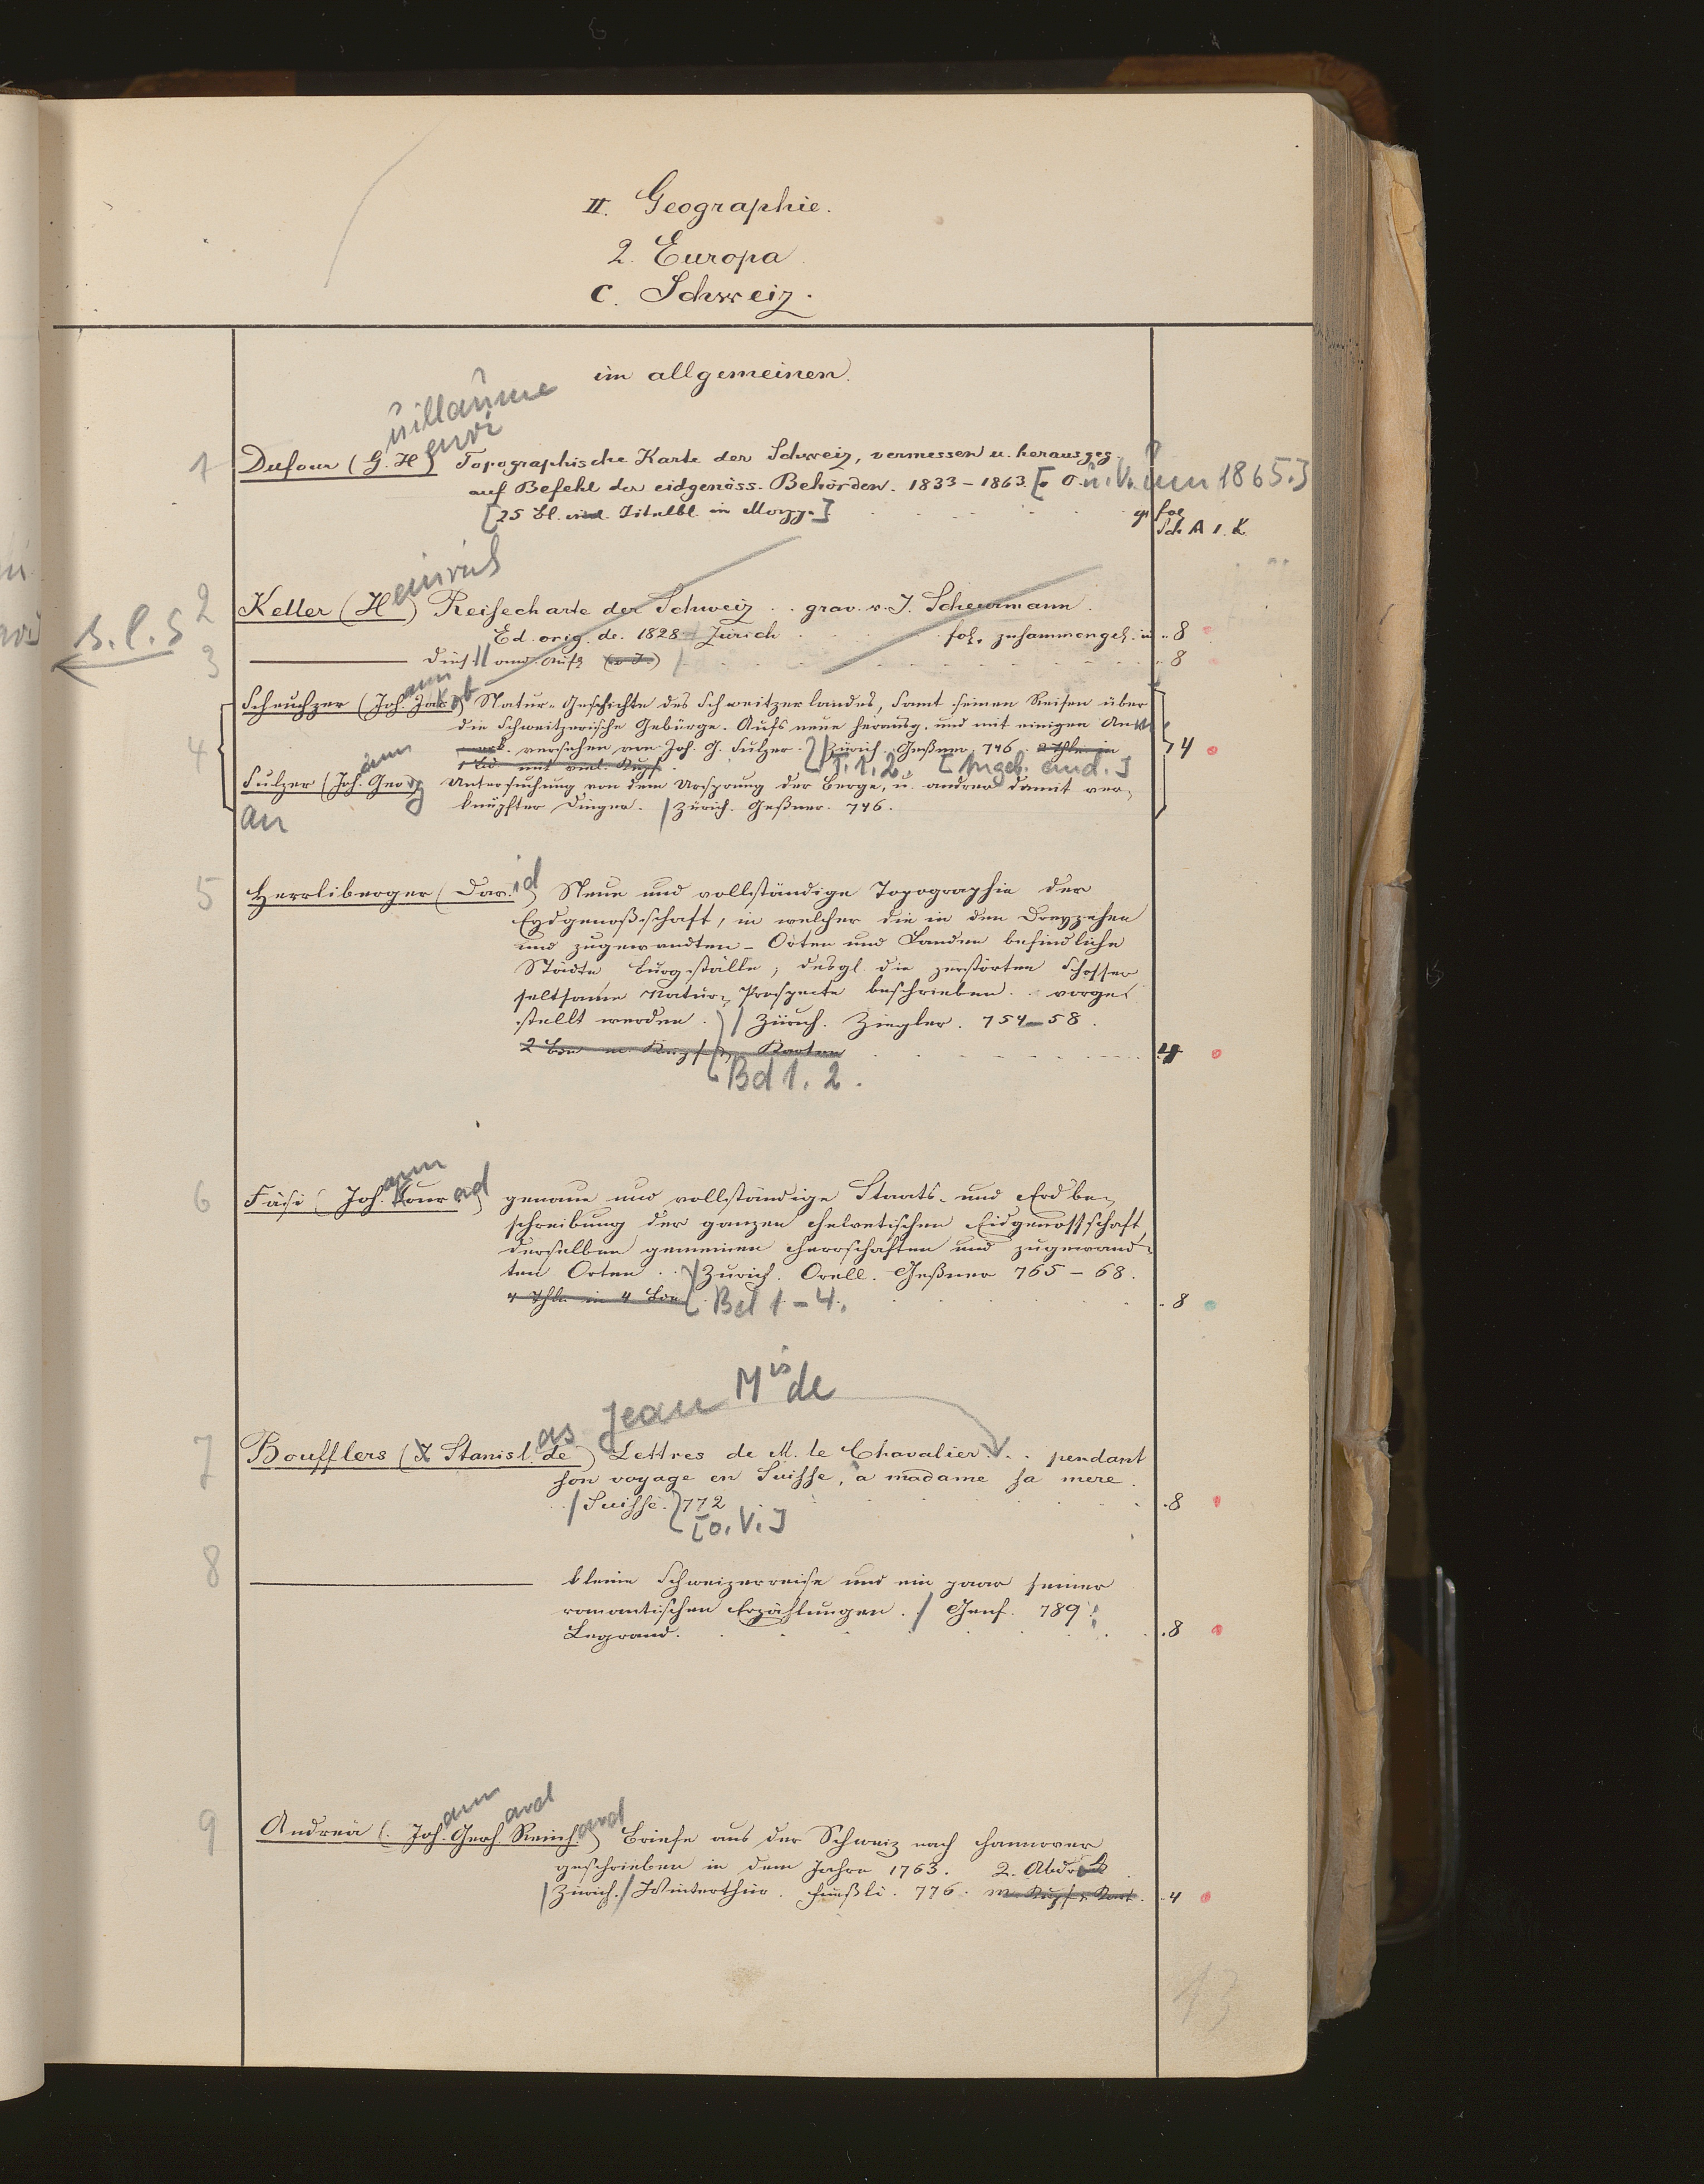 II. Geographie.
2. Europa
C. Schweiz.
im allgemeinen.
uillaume
enri
1 Dufour (G. H) Topographische Karte der Schweiz, vermessen u. herausgeg.
auf Befehl der eidgenöss. Behörden. 1833-1863. [o. O. u. V. um 1865.]
[25 Bl. incl. Titelbl. in Mappe]
gr fol
Sch A 1. K
einrich
2 Keller (H) Reisecharte der Schweiz . . grav. v. J. Scheurmann.
Ed. orig. de. 1828 Zürich fol. zusammengel. in 8
s. l. S
3 dies. and. Aufl. (o J.) 8
ann ob
4 Scheuchzer (Joh. Jak) Natur-Geschichte des Schweitzerlandes, samt seinen Reisen über
die Schweitzerische Gebürge. Aufs neue herausg. und mit einigen An
versehen von Joh. G. Sulzer. / Zürich. Geßner. 746. 2 Thle in 4
1 Bd mit viel. Kupf. T. 1. 2. [Angeb. and.]
ann
Sulzer (Joh. Georg Untersuchung von dem Ursprung der Berge, u. andrer damit ver-
an knüpfter Dinge. / Zürich. Geßner. 746.
5 Herrliberger (Dav.id) Neue und vollständige Topographie der
Eydgnoßschaft, in welcher die in den Dreyzehen
und zugewandten - Orten und Landen befindliche
Städte Burgställe, desgl. die zerstörten Schlosser
seltsame Natur- Prospecte beschrieben . . vorge
stellt werden. / Zürich. Ziegler. 754-58.
2 Bde m. Kupf u. Karten 4
Bd 1. 2.
ann
6 Fäsi (Joh. Konr ad) genaue und vollständige Staats- und Erdbe-
schreibung der ganzen helvetischen Eidgenossschaft,
derselben gemeinen Herrschaften und zugewand-
ten Orten . . / Zürich. Orell. Geßner 765-68.
4 Thle in 4 Bde Bd 1-4. 8
as Jean Mis de
7 Boufflers (X Stanisl. de) Lettres de M. le Chavalier . . pendant
son voyage en Suisse, à madame sa mere.
/ Suisse. 772 8
[o. V.]
8 kleine Schweizerreise und ein paar seiner
romantischen Erzählungen. / Genf. 789
Legrand. 8
ann ard ard
9 Andreä (Joh. Gerh. Reinh.) Briefe aus der Schweiz nach Hannover
geschrieben in dem Jahre 1763. 2. Abdruck
/ Zürich. / Winterthur. Fueßli. 776. m. Kupf u. Kart. 4
13